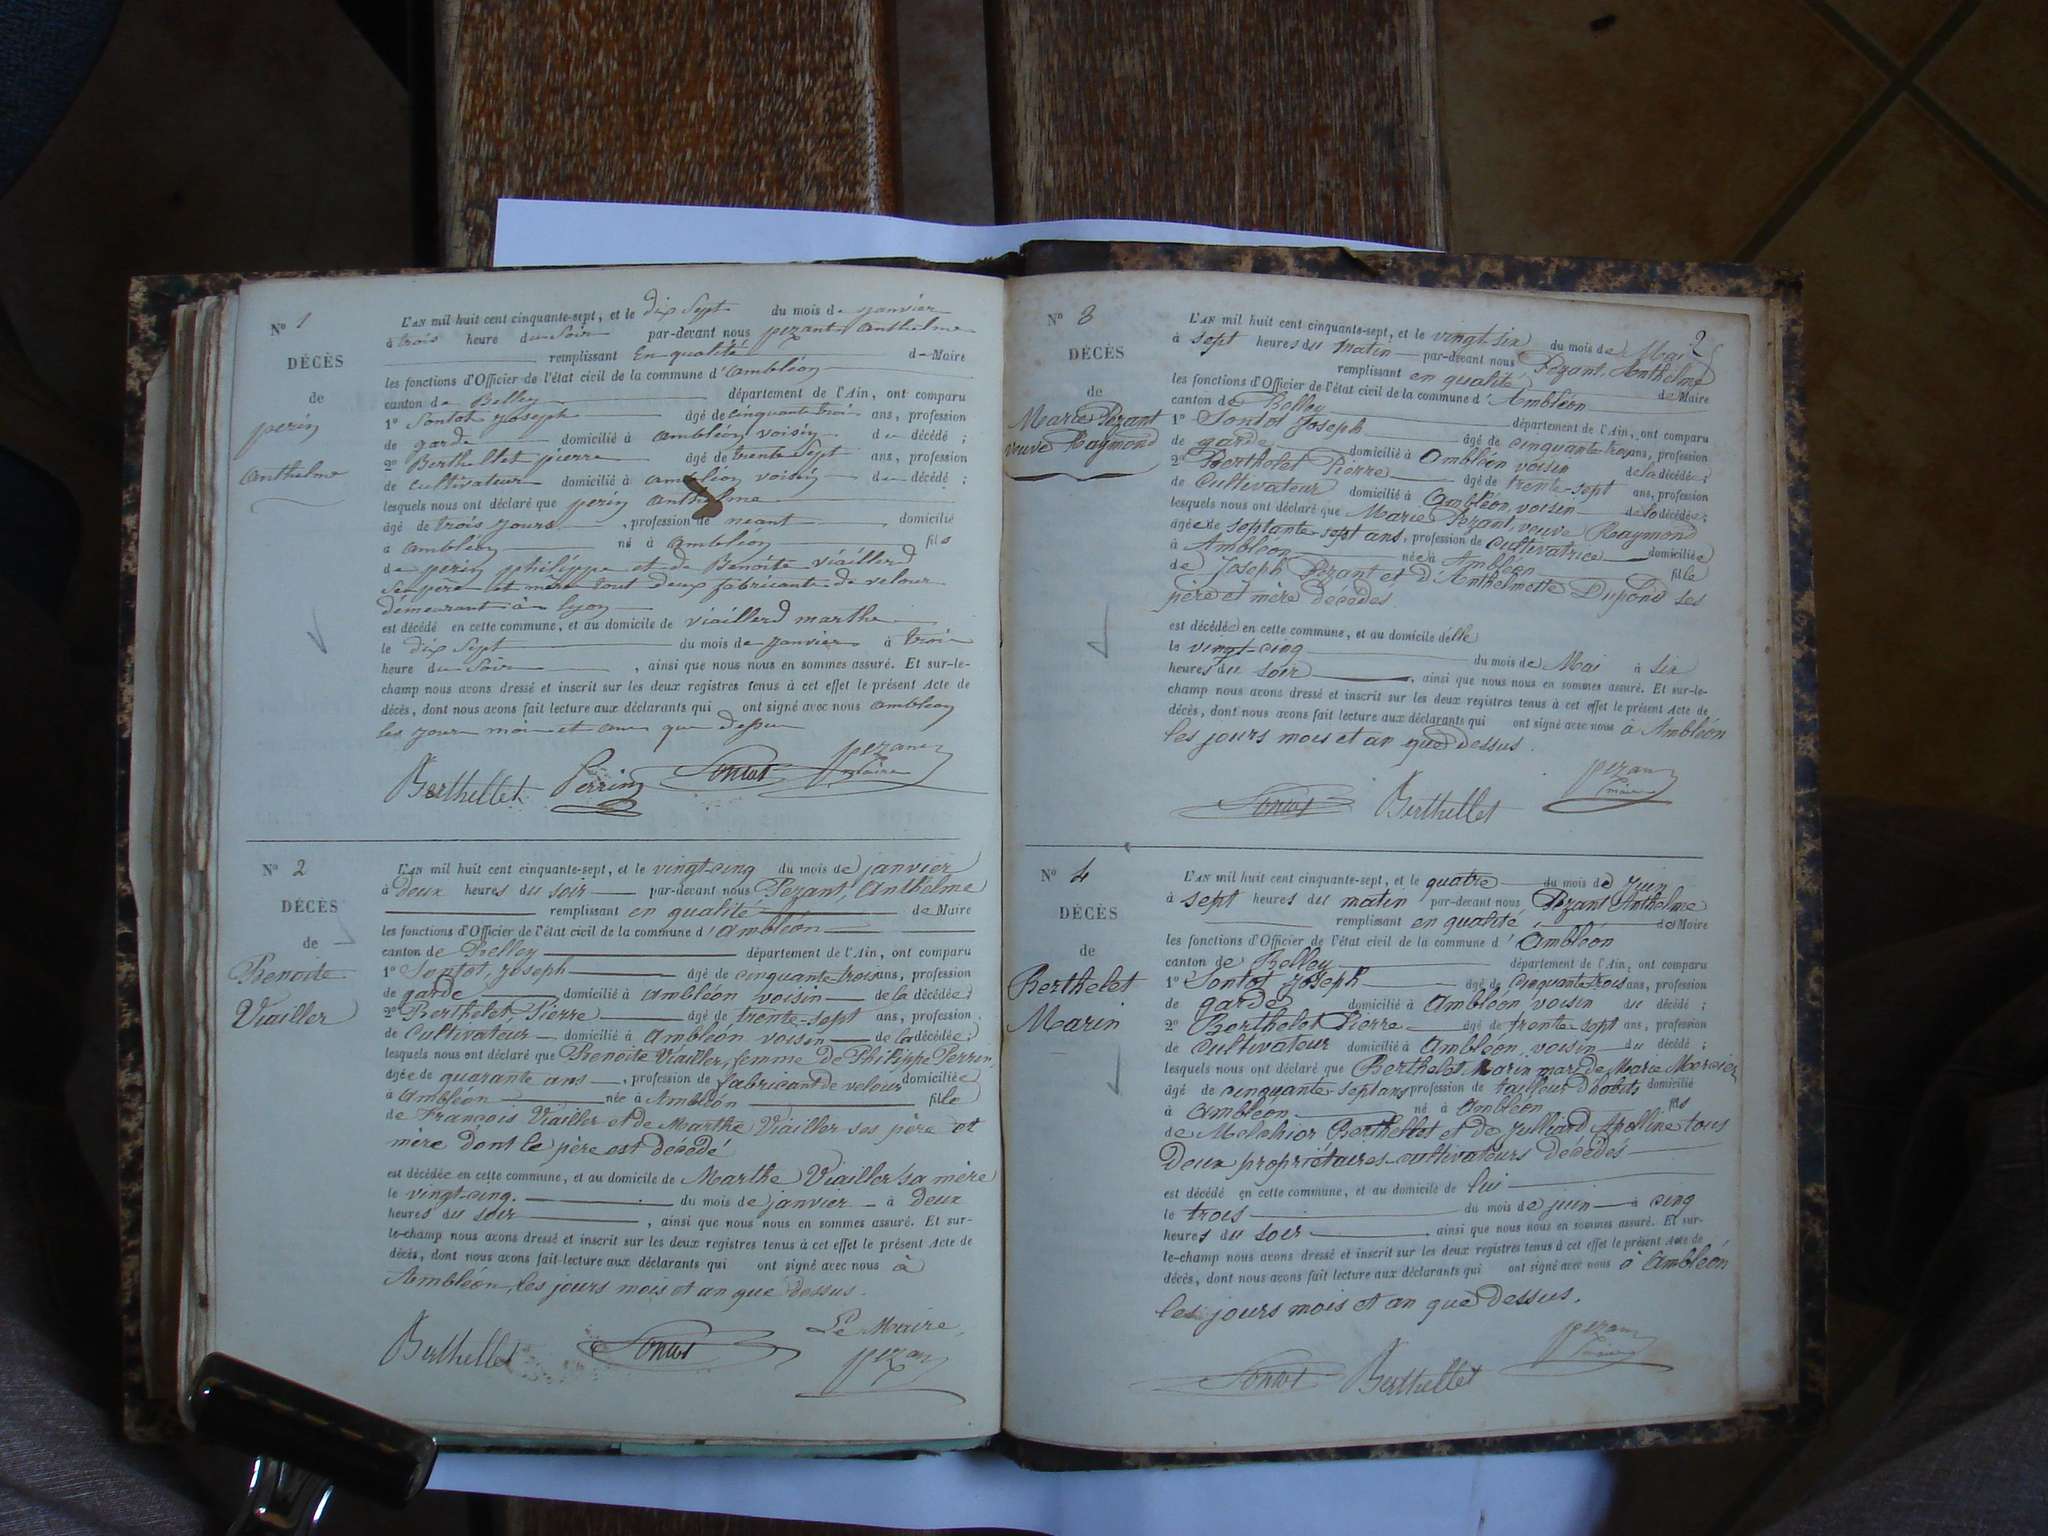 N° 1
DÉCÈS
de
perin
anthelme
L'AN mil huit cent cinquante-sept, et le dix Sept du mois de janvier
à trois heure du Soir par-devant nous pezant anthelme
remplissant En qualité de Maire
les fonctions d'Officier de l'état civil de la commune d'ambléon
canton de Belley département de l'Ain, ont comparu
1° Sontot joseph âgé de cinquante trois ans, profession
de garde domicilié à ambléon voisin du décédé ;
2° Berthellet pierre âgé de trente Sept ans, profession
de cultivateur domicilié à ambléon voisin du décédé ;
lesquels nous ont déclaré que perin anthelme
âgé de trois jours , profession de néant , domicilié
à ambléon né à ambléon fils
de perin philippe et de Benoite viailler
Ses père et mère tout deux fabricants de velour
démeurant à lyon
est décédé en cette commune, et au domicile de viailler marthe
le dix Sept du mois de janvier à trois
heure du Soir , ainsi que nous nous en sommes assuré. Et sur-le-
champ nous avons dressé et inscrit sur les deux registres tenus à cet effet le présent Acte de
décès, dont nous avons fait lecture aux déclarants qui ont signé avec nous ambleon
les jour moi et an que dessu
Berthellet Perrin Sontot pezant
maire
N° 2
DÉCÈS
de
Benoite
Viailler
L'AN mil huit cent cinquante-sept, et le vingt-cinq du mois de janvier
à Deux heures du soir par-devant nous Pezant, Anthelme
remplissant en qualité de Maire
les fonctions d'Officier de l'état civil de la commune d'Ambléon
canton de Belley département de l'Ain, ont comparu
1° Sontot, Joseph âgé de cinquante-trois ans, profession
de garde domicilié à Ambléon voisin de la décédée ;
2° Berthelet, Pierre âgé de trente-sept ans, profession
de Cultivateur domicilié à Ambléon voisin de la décédée ;
lesquels nous ont déclaré que Benoite Viailler, femme de Philippe Perrin
âgée de quarante ans , profession de fabricant de velour domiciliée
à Ambléon née à Ambléon fille
de François Viailler et de Marthe Viailler ses père et
mère dont le père est décédé
est décédée en cette commune, et au domicile de Marthe Viailler sa mère
le vingt-cinq. du mois de janvier à deux
heures du soir , ainsi que nous nous en sommes assuré. Et sur-
le-champ nous avons dressé et inscrit sur les deux registres tenus à cet effet le présent Acte de
décès, dont nous avons fait lecture aux déclarants qui ont signé avec nous à
Ambléon, les jours mois et an que dessus.
Le Maire,
Berthellet Sontot pezan
2
N° 3
DÉCÈS
de
Marie Pezant
veuve Raymond
L'AN mil huit cent cinquante-sept, et le vingt-six du mois de Mai
à sept heures du matin par-devant nous Pezant, Anthelme
remplissant en qualité de Maire
les fonctions d'Officier de l'état civil de la commune d'Ambléon
canton de Belley département de l'Ain, ont comparu
1° Sontot Joseph âgé de cinquante trois ans, profession
de garde domicilié à Ambléon voisin de la décédée ;
2° Berthelet Pierre âgé de trente-sept ans, profession
de Cultivateur domicilié à Ambléon, voisin de la décédée ;
lesquels nous ont déclaré que Marie Pezant, veuve Raymond
âgée de septante-sept ans, profession de Cultivatrice domiciliée
à Ambléon née à Ambléon fille
de Joseph Pezant et d'Anthelmette Dupond ses
père et mère décédés.
est décédée en cette commune, et au domicile d'elle
le vingt-cinq du mois de Mai à six
heures du soir , ainsi que nous nous en sommes assuré. Et sur-le-
champ nous avons dressé et inscrit sur les deux registres tenus à cet effet le présent Acte de
décès, dont nous avons fait lecture aux déclarants qui ont signé avec nous à Ambléon
les jours mois et an que dessus.
Sontot Berthellet pezan
maire
N° 4
DÉCÈS
de
Berthelet
Marin
L'AN mil huit cent cinquante-sept, et le quatre du mois de Juin
à sept heures du matin par-devant nous Pezant Anthelme
remplissant en qualité de Maire
les fonctions d'Officier de l'état civil de la commune d'Ambléon
canton de Belley département de l'Ain, ont comparu
1° Sontot Joseph âgé de cinquante trois ans, profession
de garde domicilié à Ambléon voisin du décédé ;
2° Berthelet Pierre âgé de trente-sept ans, profession
de cultivateur domicilié à Ambléon, voisin du décédé ;
lesquels nous ont déclaré que Berthelet, Marin mari de Marie Mercier
âgé de cinquante-sept ans profession de tailleur d'habits domicilié
à Ambléon né à Ambléon fils
de Melchior Berthellet et de Julliard Apolline tous
Deux propriétaires-cultivateurs décédés
est décédé en cette commune, et au domicile de lui
le trois du mois de juin à cinq
heures du soir , ainsi que nous nous en sommes assuré. Et sur-
le-champ nous avons dressé et inscrit sur les deux registres tenus à cet effet le présent Acte de
décès, dont nous avons fait lecture aux déclarants qui ont signé avec nous à Ambléon
les jours mois et an que dessus.
Sontot Berthellet pezan
maire